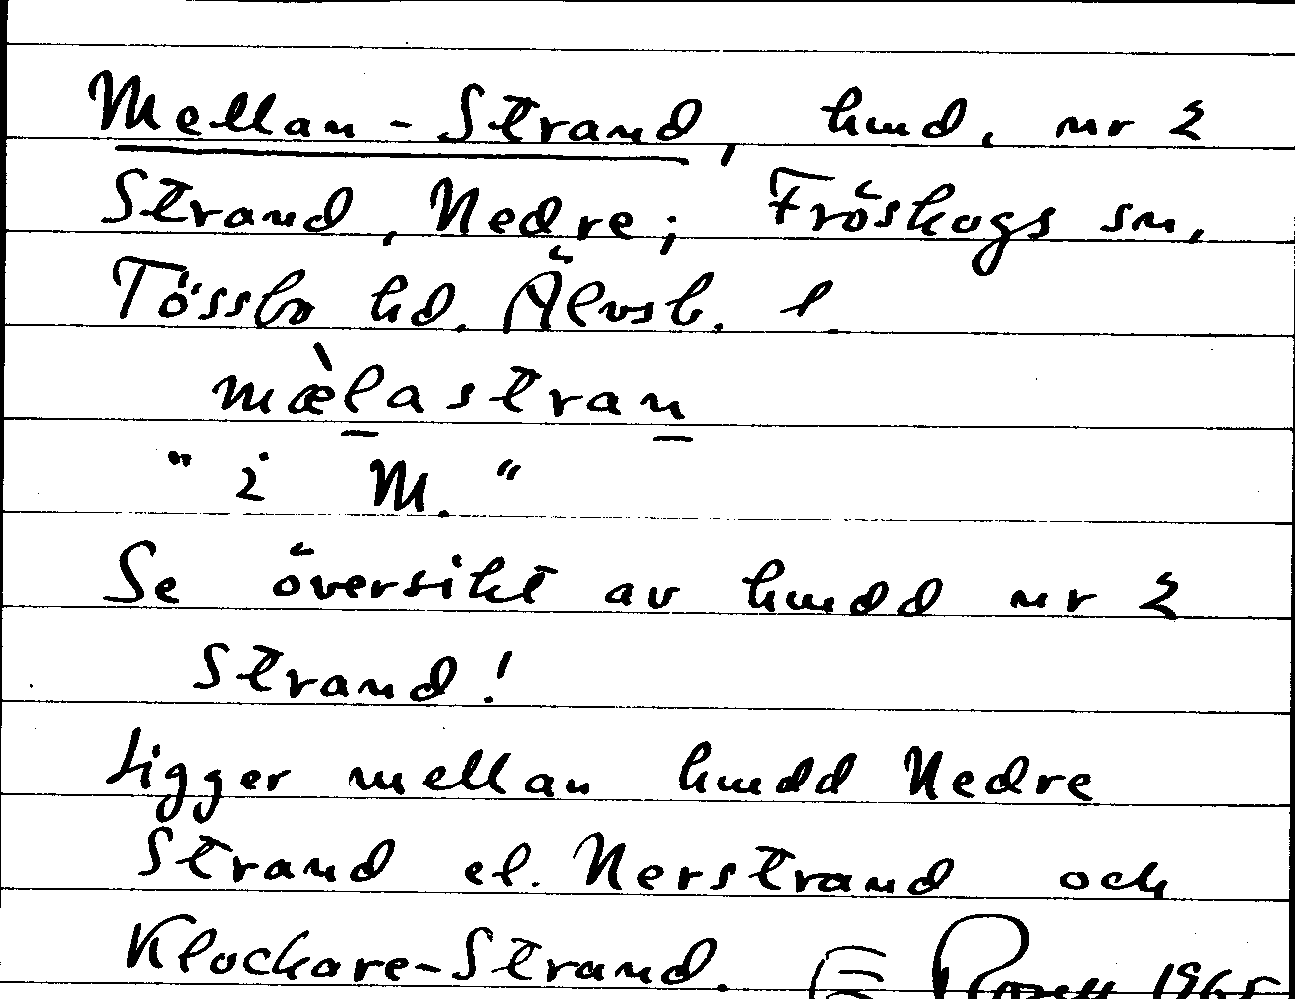 Mellan-Strand, hmd. nr 2
Strand, Nedre; Fröskogs sn,
Tössbo hd. Älvsb. l.
mæ̀l̠astran̠
"i M."
Se översikt av hmdd nr 2
Strand!
Ligger mellan hmdd Nedre
Strand el. Nerstrand och
Klockare-Strand. E Rosell 1965